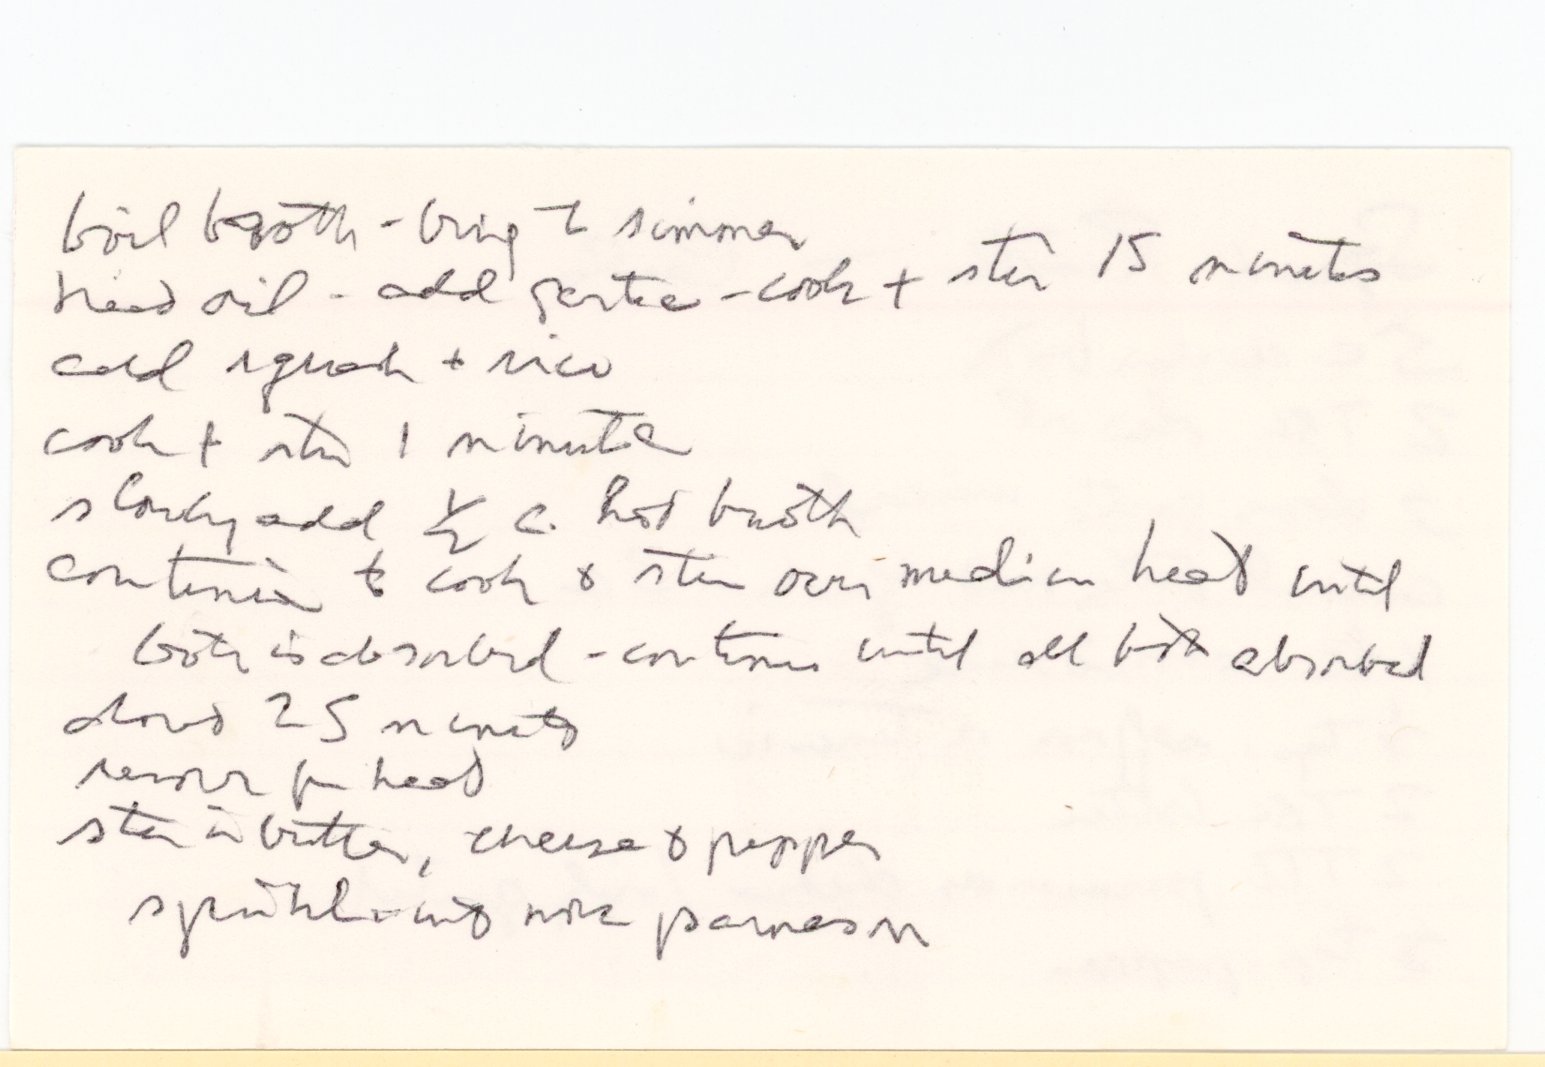 boil broth - bring to simmer
heat oil - add garlic - cook + stir 15 minutes
add squash + rice
cook + stir 1 minute
slowly add 1/2 c. hot broth
continue to cook & stir over medium heat until
broth is absorbed - continue until all broth absorbed
about 25 minutes
remove from heat
stir in butter, cheese & pepper
sprinkle with more parmesan